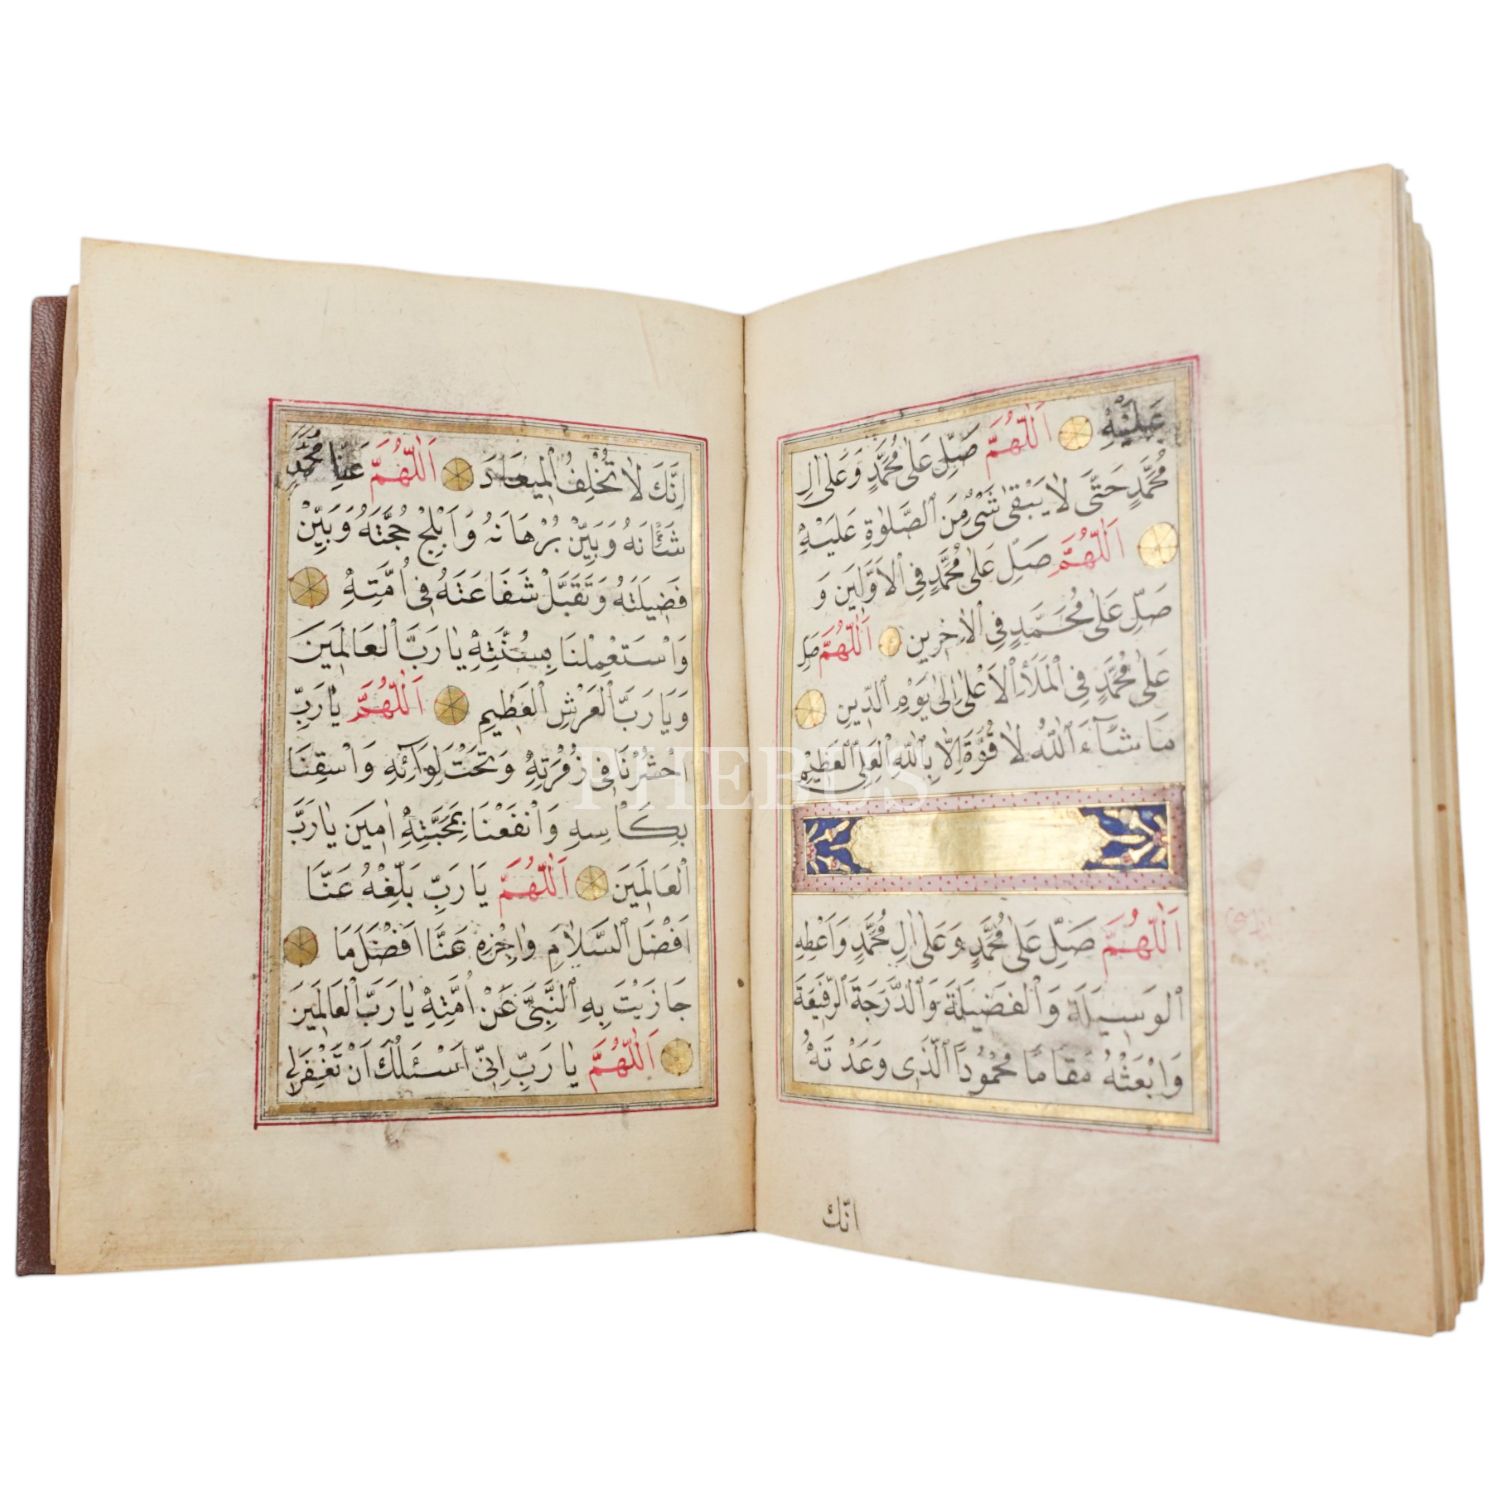 عَلَيْهِ اَللّٰهُمَّ صَلِّ عَلٰى مُحَمَّدٍ وَعَلٰى اٰلِ
مُحَمَّدٍ حَتّٰى لَا يَبْقٰى شَىْءٌ مِنَ الصَّلٰوةِ عَلَيْهِ
اَللّٰهُمَّ صَلِّ عَلٰى مُحَمَّدٍ فِى الْاَوَّلِينَ وَ
صَلِّ عَلٰى مُحَمَّدٍ فِى الْاٰخِرِينَ اَللّٰهُمَّ صَلِّ
عَلٰى مُحَمَّدٍ فِى الْمَلَأِ الْاَعْلٰى اِلٰى يَوْمِ الدِّينِ
مَا شَاءَ اللّٰهُ لَا قُوَّةَ اِلَّا بِاللّٰهِ الْعَلِىِّ الْعَظِيْمِ
اَللّٰهُمَّ صَلِّ عَلٰى مُحَمَّدٍ وَعَلٰى اٰلِ مُحَمَّدٍ وَاَعْطِهِ
الْوَسِيلَةَ وَالْفَضِيلَةَ وَالدَّرَجَةَ الرَّفِيعَةَ
وَابْعَثْهُ مَقَامًا مَحْمُودًا الَّذِى وَعَدْتَهُ
انّك
اِنَّكَ لَا تُخْلِفُ الْمِيعَادَ اَللّٰهُمَّ عَظِّمْ
شَأْنَهُ وَبَيِّنْ بُرْهَانَهُ وَاَبْلِجْ حُجَّتَهُ وَبَيِّنْ
فَضِيلَتَهُ وَتَقَبَّلْ شَفَاعَتَهُ فِى اُمَّتِهِ
وَاسْتَعْمِلْنَا بِسُنَّتِهِ يَا رَبَّ الْعَالَمِينَ
وَيَا رَبَّ الْعَرْشِ الْعَظِيمِ اَللّٰهُمَّ يَا رَبِّ
احْشُرْنَا فِى زُمْرَتِهِ وَتَحْتَ لِوَائِهِ وَاسْقِنَا
بِكَاْسِهِ وَانْفَعْنَا بِمَحَبَّتِهِ اٰمِينَ يَا رَبَّ
الْعَالَمِينَ اَللّٰهُمَّ يَا رَبِّ بَلِّغْهُ عَنَّا
اَفْضَلَ السَّلَامِ وَاجْزِهِ عَنَّا اَفْضَلَ مَا
جَازَيْتَ بِهِ النَّبِىَّ عَنْ اُمَّتِهِ يَا رَبَّ الْعَالَمِينَ
اَللّٰهُمَّ يَا رَبِّ اِنِّى اَسْئَلُكَ اَنْ تَغْفِرَلِى
PHEBUS